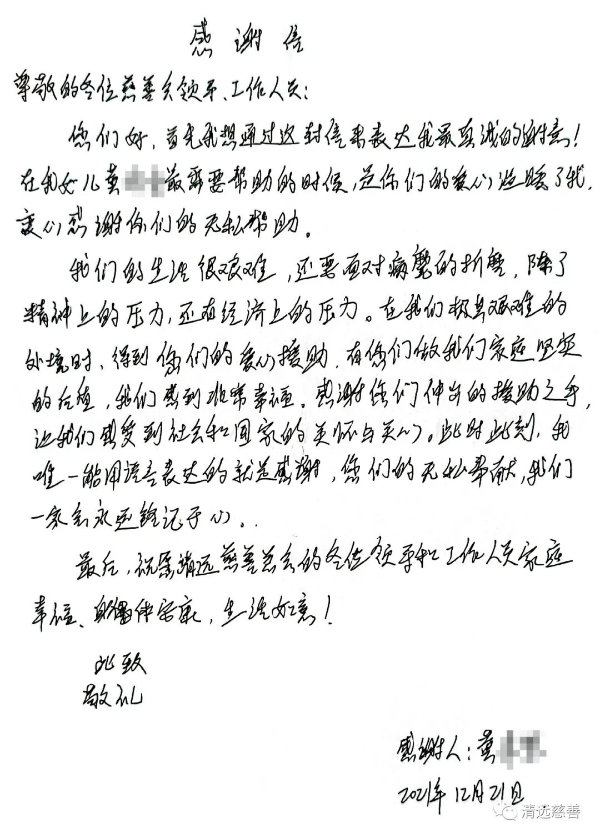 感谢信
尊敬的各位慈善会领导、工作人员:
您们好,首先我想通过这封信来表达我最真诚的谢意!
在我女儿黄 最需要帮助的时候,是你们的爱心温暖了我,
衷心感谢你们的无私帮助。
我们的生活很艰难,还要面对病魔的折磨,除了
精神上的压力,还有经济上的压力。在我们极其艰难的
处境时,得到您们的爱心援助,有您们做我们家庭坚实
的后盾,我们感到非常幸福。感谢你们伸出的援助之手,
让我们感受到社会和国家的关怀与关心。此时此刻,我
唯一能用语言表达的就是感谢,您们的无私奉献,我们
一家会永远铭记于心。
最后,祝愿清远慈善总会的各位领导和工作人员家庭
幸福、身体安康,生活如意!
此致
敬礼
感谢人:黄
2021年12月21日
清远慈善